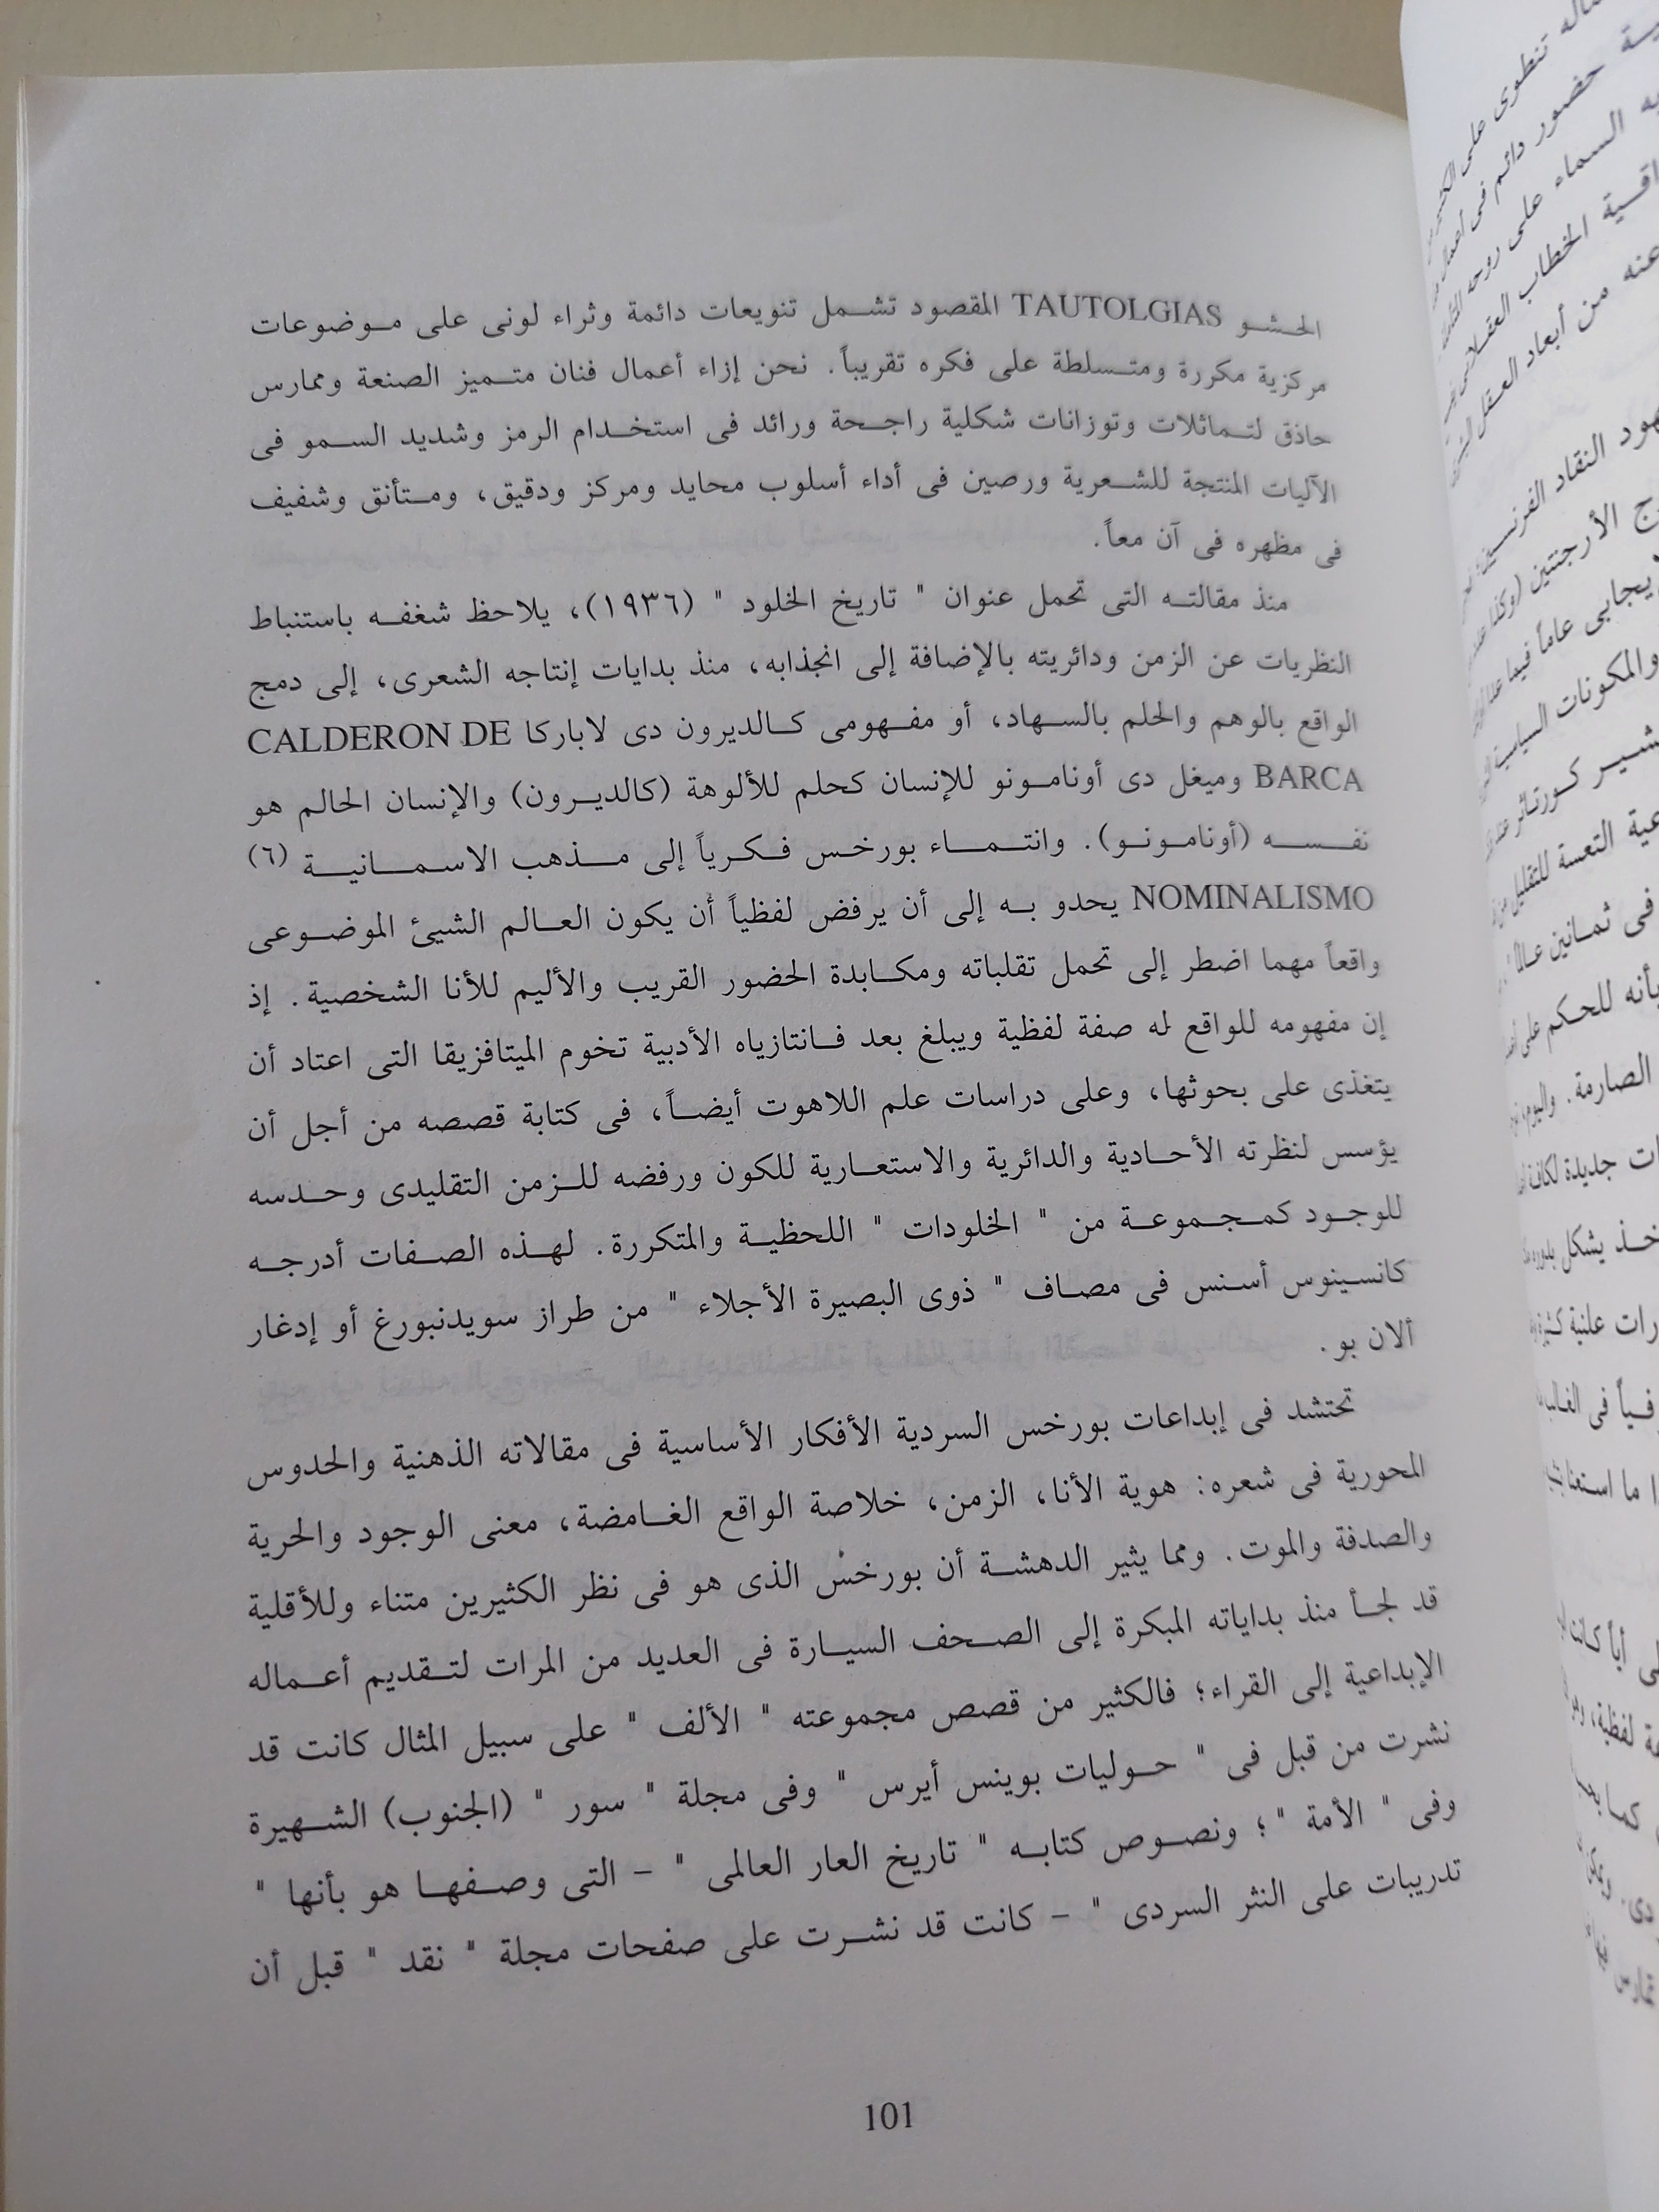 الحشو TAUTOLGIAS المقصود تشمل تنويعات دائمة وثراء لونى على موضوعات
مركزية مكررة ومتسلطة على فكره تقريباً. نحن إزاء أعمال فنان متميز الصنعة وممارس
حاذق لتماثلات وتوزانات شكلية راجحة ورائد فى استخدام الرمز وشديد السمو فى
الآليات المنتجة للشعرية ورصين فى أداء أسلوب محايد ومركز ودقيق، ومتأنق وشفيف
فى مظهره فى آن معاً.
منذ مقالته التى تحمل عنوان " تاريخ الخلود " (١٩٣٦)، يلاحظ شغفه باستنباط
النظريات عن الزمن ودائريته بالإضافة إلى انجذابه، منذ بدايات إنتاجه الشعرى، إلى دمج
الواقع بالوهم والحلم بالسهاد، أو مفهومى كالديرون دى لاباركا CALDERON DE
BARCA وميغل دى أونامونو للإنسان كحلم للألوهة (كالديرون) والإنسان الحالم هو
نفسه (أونامونو). وانتماء بورخس فكرياً إلى مذهب الاسمانية (٦)
NOMINALISMO يحدو به إلى أن يرفض لفظياً أن يكون العالم الشيئ الموضوعى
واقعاً مهما اضطر إلى تحمل تقلباته ومكابدة الحضور القريب والأليم للأنا الشخصية. إذ
إن مفهومه للواقع له صفة لفظية ويبلغ بعد فانتازياه الأدبية تخوم الميتافزيقا التى اعتاد أن
يتغذى على بحوثها، وعلى دراسات علم اللاهوت أيضاً، فى كتابة قصصه من أجل أن
يؤسس لنظرته الأحادية والدائرية والاستعارية للكون ورفضه للزمن التقليدى وحدسه
للوجود كمجموعة من " الخلودات " اللحظية والمتكررة. لهذه الصفات أدرجه
كانسينوس أسنس فى مصاف " ذوى البصيرة الأجلاء " من طراز سويدنبورغ أو إدغار
ألان بو.
تحتشد فى إبداعات بورخس السردية الأفكار الأساسية فى مقالاته الذهنية والحدوس
المحورية فى شعره: هوية الأنا، الزمن، خلاصة الواقع الغامضة، معنى الوجود والحرية
والصدفة والموت. ومما يثير الدهشة أن بورخس الذى هو فى نظر الكثيرين متناء وللأقلية
قد لجأ منذ بداياته المبكرة إلى الصحف السيارة فى العديد من المرات لتقديم أعماله
الإبداعية إلى القراء؛ فالكثير من قصص مجموعته " الألف " على سبيل المثال كانت قد
نشرت من قبل فى " حوليات بوينس أيرس " وفى مجلة " سور " (الجنوب) الشهيرة
وفى " الأمة "؛ ونصوص كتابه " تاريخ العار العالمى " – التى وصفها هو بأنها "
تدريبات على النثر السردى " – كانت قد نشرت على صفحات مجلة " نقد " قبل أن
101